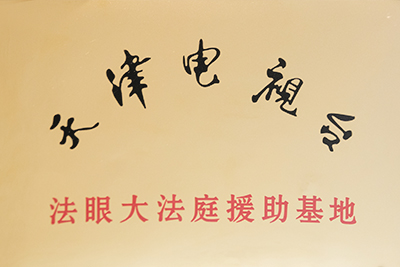 天津电视台
法眼大法庭援助基地